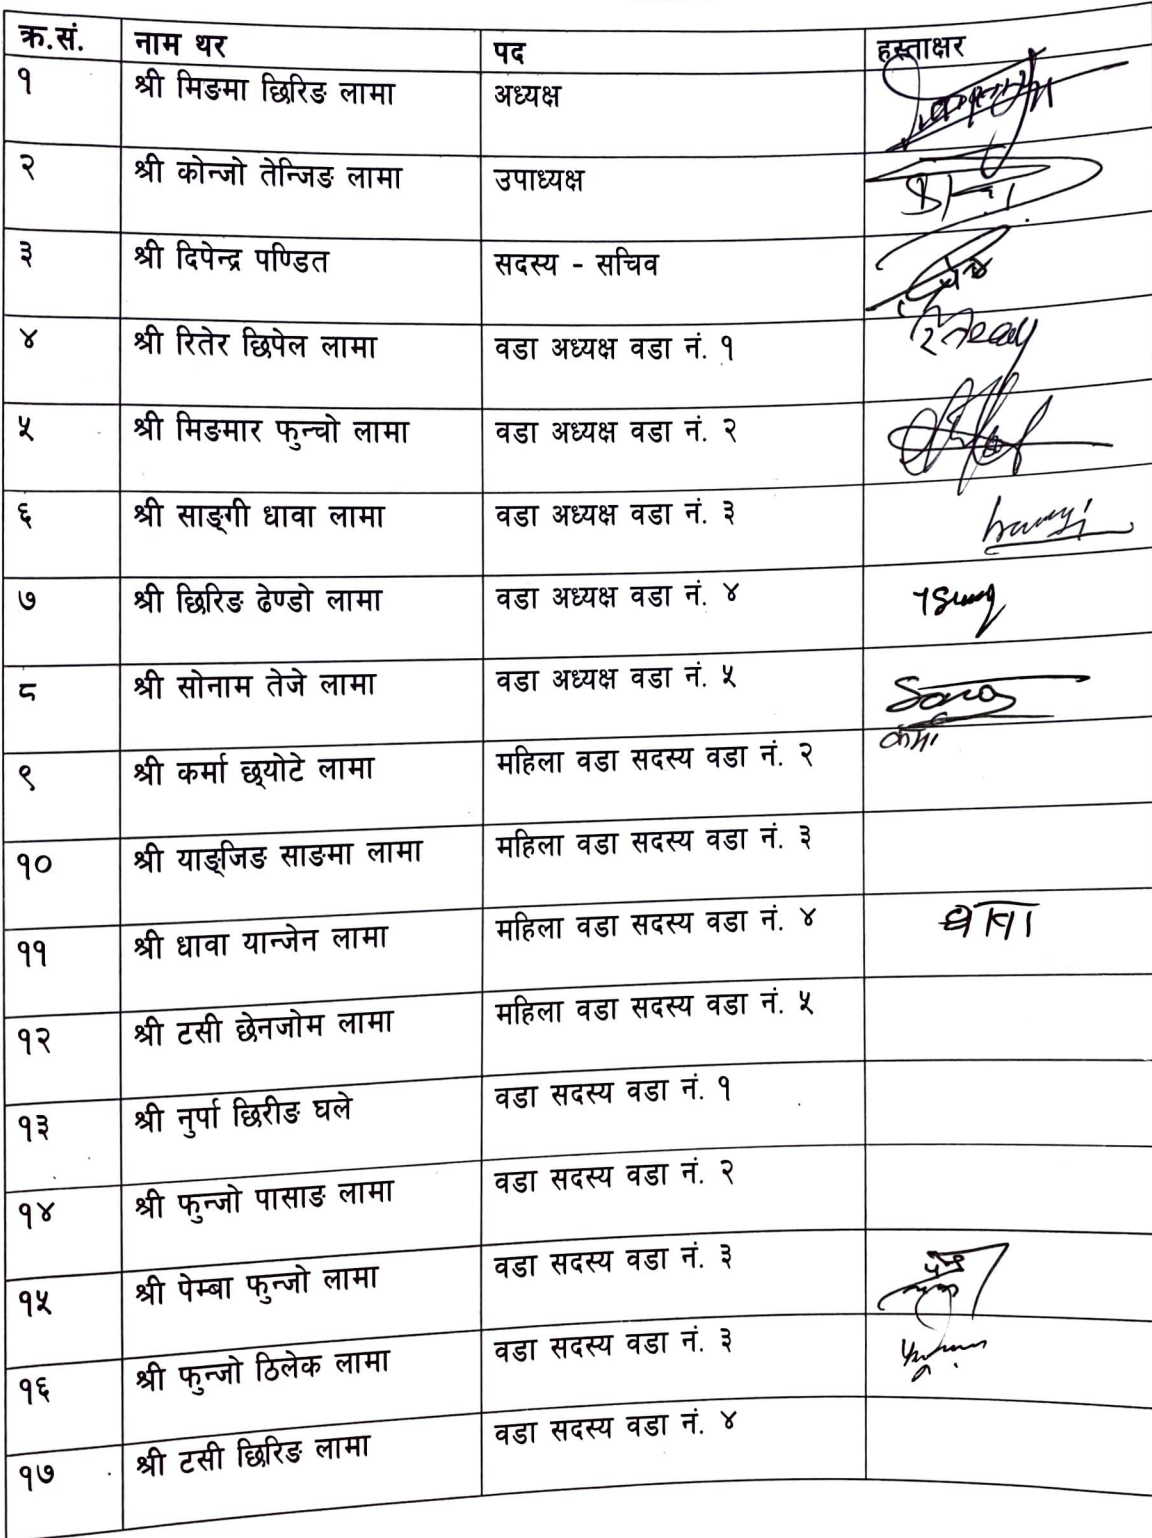 क्र.सं. नाम थर पद हस्ताक्षर
१ श्री मिङमा छिरिङ लामा अध्यक्ष
२ श्री कोन्जो तेन्जिङ लामा उपाध्यक्ष
३ श्री दिपेन्द्र पण्डित सदस्य - सचिव
४ श्री रितेर छिपेल लामा वडा अध्यक्ष वडा नं. १
५ श्री मिङमार फुन्चो लामा वडा अध्यक्ष वडा नं. २
६ श्री साङ्गी धावा लामा वडा अध्यक्ष वडा नं. ३
७ श्री छिरिङ ढेण्डो लामा वडा अध्यक्ष वडा नं. ४
८ श्री सोनाम तेजे लामा वडा अध्यक्ष वडा नं. ५
९ श्री कर्मा छ्योटे लामा महिला वडा सदस्य वडा नं. २ कर्मा
१० श्री याङ्जिङ साङमा लामा महिला वडा सदस्य वडा नं. ३
११ श्री धावा यान्जेन लामा महिला वडा सदस्य वडा नं. ४ धावा
१२ श्री टसी छेनजोम लामा महिला वडा सदस्य वडा नं. ५
१३ श्री नुर्पा छिरीङ घले वडा सदस्य वडा नं. १
१४ श्री फुन्जो पासाङ लामा वडा सदस्य वडा नं. २
१५ श्री पेम्बा फुन्जो लामा वडा सदस्य वडा नं. ३
१६ श्री फुन्जो ठिलेक लामा वडा सदस्य वडा नं. ३
१७ श्री टसी छिरिङ लामा वडा सदस्य वडा नं. ४